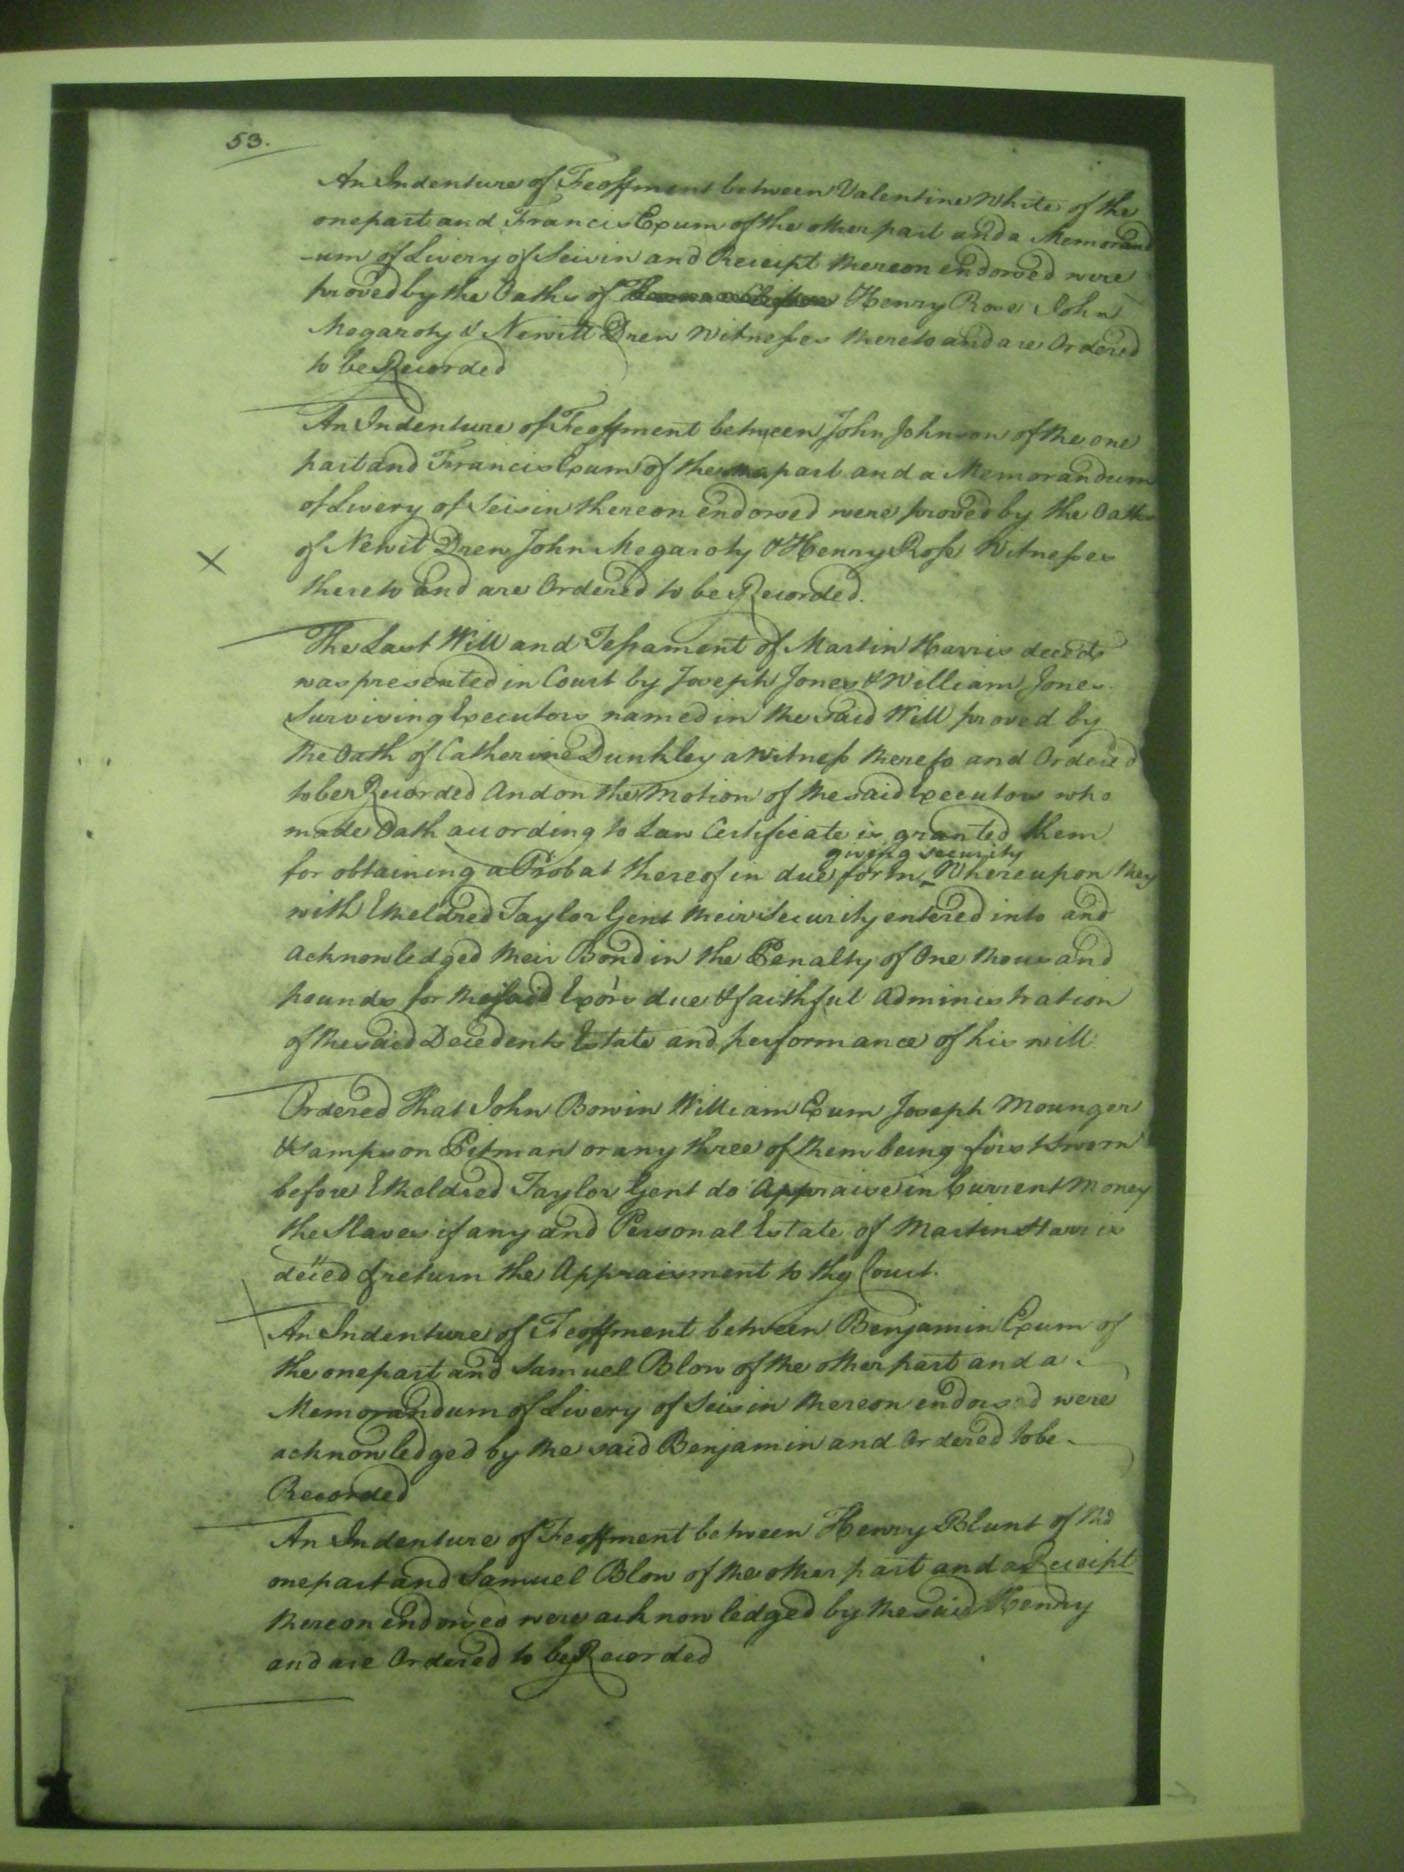 53.
An Indenture of Feoffment between Valentine White of the
one part and Francis Exum of the other part and a Memorand
-um of Livery of Seisin and Receipt thereon endorsed were
proved by the Oaths of Henry Rose John
Megaroty & Newitt Drew Witnesses thereto and are Ordered
to be Recorded
An Indenture of Feoffment between John Johnson of the one
part and Francis Exum of the part and a Memorandum
of Livery of Seisin thereon endorsed were proved by the Oaths
of Newit Drew John Megaroty & Henry Rose Witnesses
thereto and are Ordered to be Recorded.
The Last Will and Testament of Martin Harris deced
was presented in Court by Joseph Jones & William Jones
Surviving Executors named in the said Will proved by
the Oath of Catherine Dunkley a Witness thereto and Ordered
to be Recorded And on the Motion of the said Executors who
made Oath according to Law Certificate is granted them
for obtaining a Probat thereof in due form giving security Whereupon they
with Etheldred Taylor Gent their Security entered into and
acknowledged their Bond in the Penalty of One thousand
pounds for the said Exors due & faithful Administration
of the said Decedents Estate and performance of his will
Ordered That John Bowin William Exum Joseph Mounger
& Sampson Pitman or any three of them being first Sworn
before Etheldred Taylor Gent do Appraise in Current Money
the Slaves if any and Personal Estate of Martin Harris
deced & return the Appraisment to the Court.
An Indenture of Feoffment between Benjamin Exum of
the one part and Samuel Blow of the other part and a
Memorandum of Livery of Seisin thereon endorsed were
acknowledged by the said Benjamin and Ordered to be
Recorded
An Indenture of Feoffment between Henry Blunt of the
one part and Samuel Blow of the other part and a Receipt
thereon endorsed were acknowledged by the said Henry
and are Ordered to be Recorded